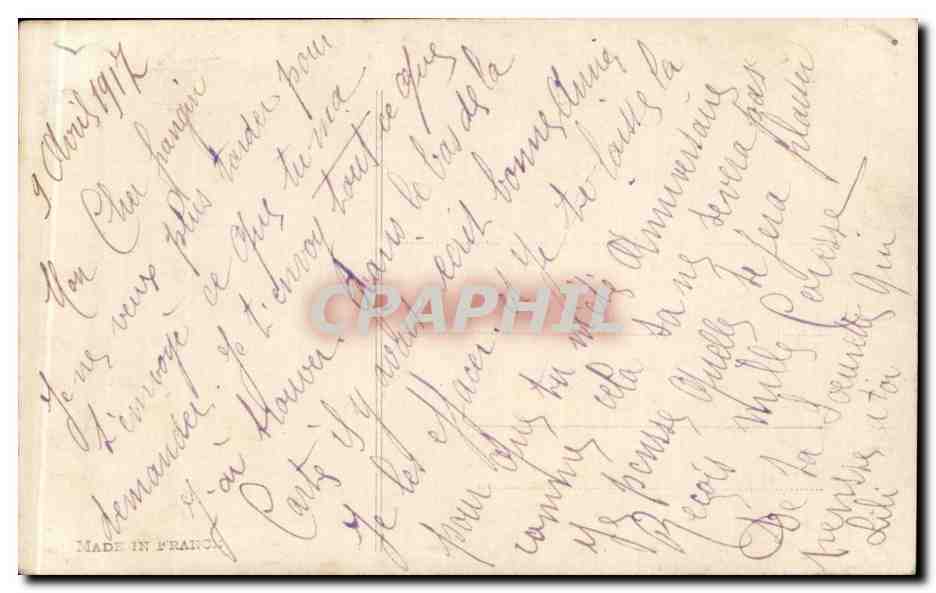 9 Avril 1917
Mon Cher frangin
Je ne veux plus tarder pour
t'envoyé ce que tu m'a
demander. Je t'envoy tout ce que
j'ai trouver. Dans le bas de la
Carte il y avait écrit bonne Année
Je les effacer. Je te laisse la
pour que tu mes Anniversaire
comme cela sa ne severa pas
Je pense quelle te fera plaisir
Reçois mille Caresse
De ta Soeurette qui
pense a toi
Lili
MADE IN FRANCE
CPAPHIL